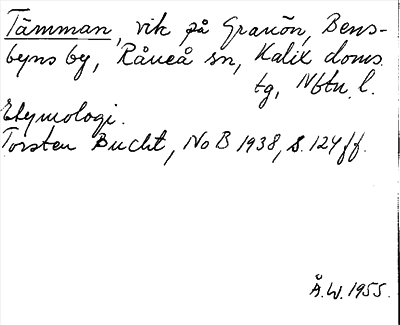 Tämman, vik på Granön, Bens-
byns by, Råneå sn, Kalix doms.
tg, Nbtn. l.
Etymologi.
Torsten Bucht, NoB 1938, s. 124 ff.
Å.W. 1955.